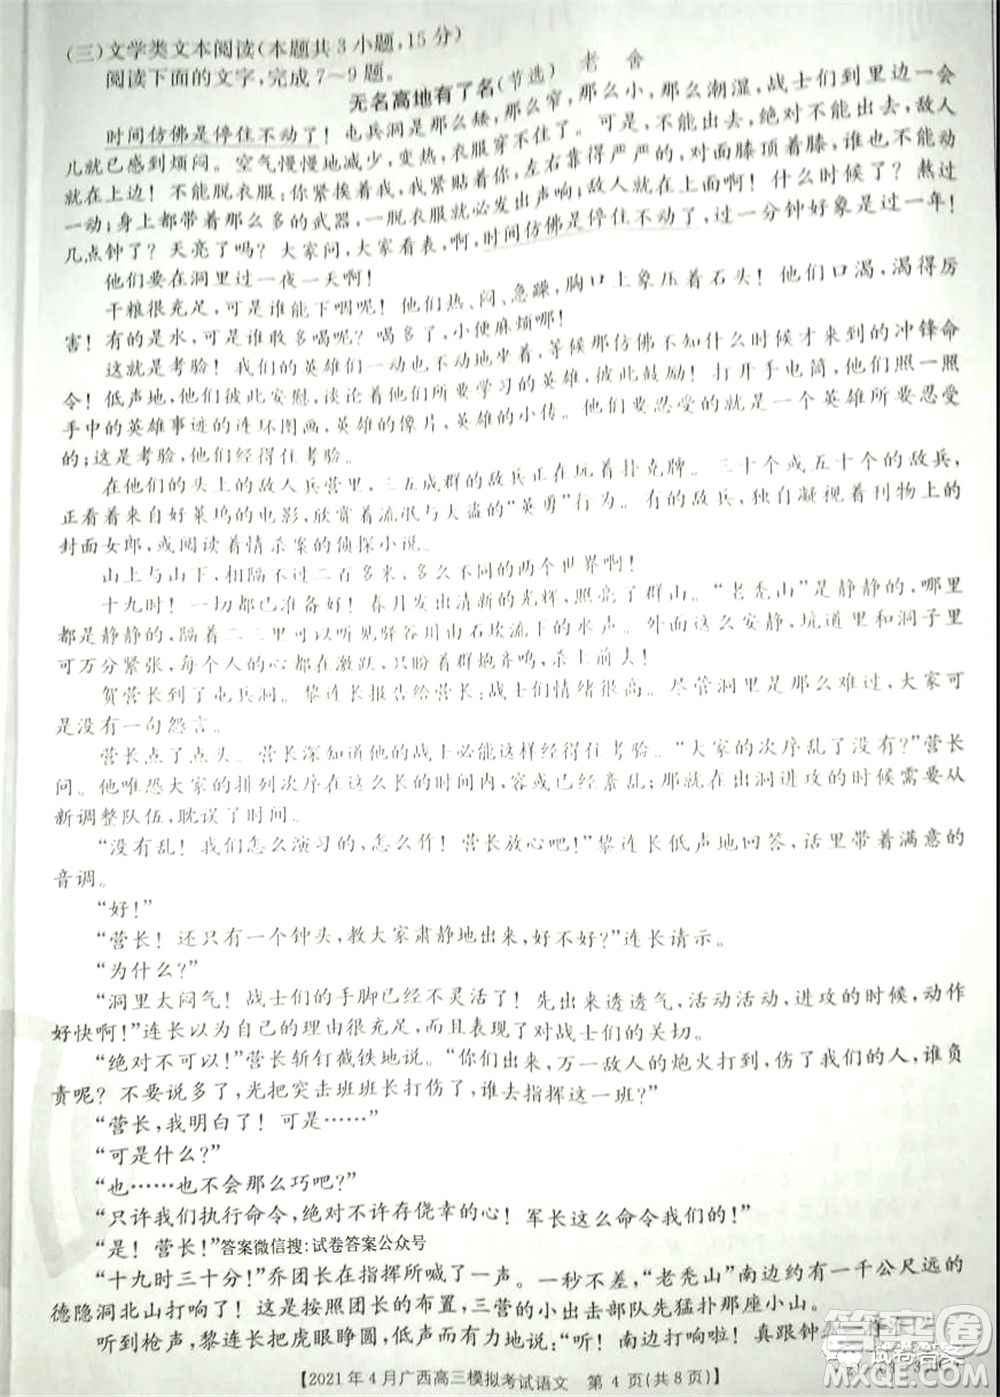 (三)文学类文本阅读(本题共3小题,15分)
阅读下面的文字,完成7~9题。
无名高地有了名(节选) 老 舍
时间仿佛是停住不动了！屯兵洞是那么矮，那么窄，那么小，那么潮湿，战士们到里边一会
儿就已感到烦闷。空气慢慢地减少，气慢慢变热，衣服穿不住了。可是，不能出去，绝对不能出去，敌人
就在上边！不能脱衣服；你紧挨着我，我紧贴着你，左右靠得严严的，对面膝顶着膝，什么时候了？
一动；身上都带着那么多的武器，一脱衣服就必发出声响；敌人就在上面啊！
几点钟了？天亮了吗？大家问，大家看表，啊，时间仿佛是停住不动了，过一分钟好象是过一年！
他们要在洞里过一夜一天啊！
干粮很充足，可是谁能下咽呢！他们热、闷、急躁，胸口上象压着石头！他们口渴，渴得厉
害！有的是水，可是谁敢多喝呢？喝多了，小便麻烦哪！
这就是考验！我们的英雄们一动也不动地坐着，等候那仿佛永不会来到的冲锋命
令！低声地，他们彼此安慰，谈论着他们所要学习的英雄，彼此鼓励！打开手电筒，看看
手中的英雄事迹的连环图画，英雄的像片，英雄的小传。他们要忍受的，是英雄所要忍受
的；这是考验，他们经得住考验。
在他们的头上的敌人兵营里，成群的敌兵正在玩着扑克牌。三十个或五十个的敌兵，
正看着来自好莱坞的电影，欣赏着流氓与大盗的“英勇”行为。有的敌兵，独自欣赏着刊物上的
封面女郎，或阅读着情杀案的侦探小说。
山上与山下，相隔不过二百多米，多么不同的两个世界啊！
十九时！一切都已准备好！春月发出清新的光辉，照亮了群山。“老秃山”是静静的，哪里
都是静静的，隔着二三里可以听见驿谷川由石坎流下的水声。外面这么安静，坑道里和洞子里
可万分紧张，每个人的心都在激跃，只等群炮齐鸣，一拥上前去！
贺营长到了屯兵洞。黎连长报告给营长：战士们情绪很高。尽管洞里是那么难过，大家可
是没有一句怨言。
营长点了点头。营长深知道他的战士必能这样经得住考验。“大家的次序乱了没有？”营长
问。他唯恐大家的排列次序在这么长的时间内，容易紊乱；那就在出洞进攻的时候需要从
新调整队伍，耽误了时间。
“没有乱！我们怎么演习的，怎么作！营长放心吧！”黎连长低声地回答，话里带着满意的
音调。
“好！”
“营长！还只有一个钟头，教大家肃静地出来，好不好？”连长请示。
“为什么？”
“洞里太闷气！战士们的手脚已经不灵活了！先出来透透气，活动活动，进攻的时候，动作
好快啊！”连长以为自己的理由很充足，而且表示出对战士们的关切。
“绝对不可以！”营长斩钉截铁地说。“你们出来，万一敌人的炮火打到，伤了我们的人，谁负
责呢？不要说多了，光把突击班班长打伤了，谁去指挥这一班？”
“营长，我明白了！可是……”
“可是什么？”
“也……也不会那么巧吧？”
“只许我们执行命令，绝对不许存侥幸的心！军长这么命令我们的！”
“是！营长！”答案微信搜:试卷答案公众号
“十九时三十分！”乔团长在指挥所喊了一声。一秒不差，“老秃山”南边约有一千公尺远的
德隐洞北山打响了！这是按照团长的布置，三营的小出击部队先猛扑那座小山。
听到枪声，黎连长把虎眼睁圆，低声而有力地说：“听！南边打响了！真跟钟
【2021年4月广西高三模拟考试语文 第4页(共8页)】
试卷答案